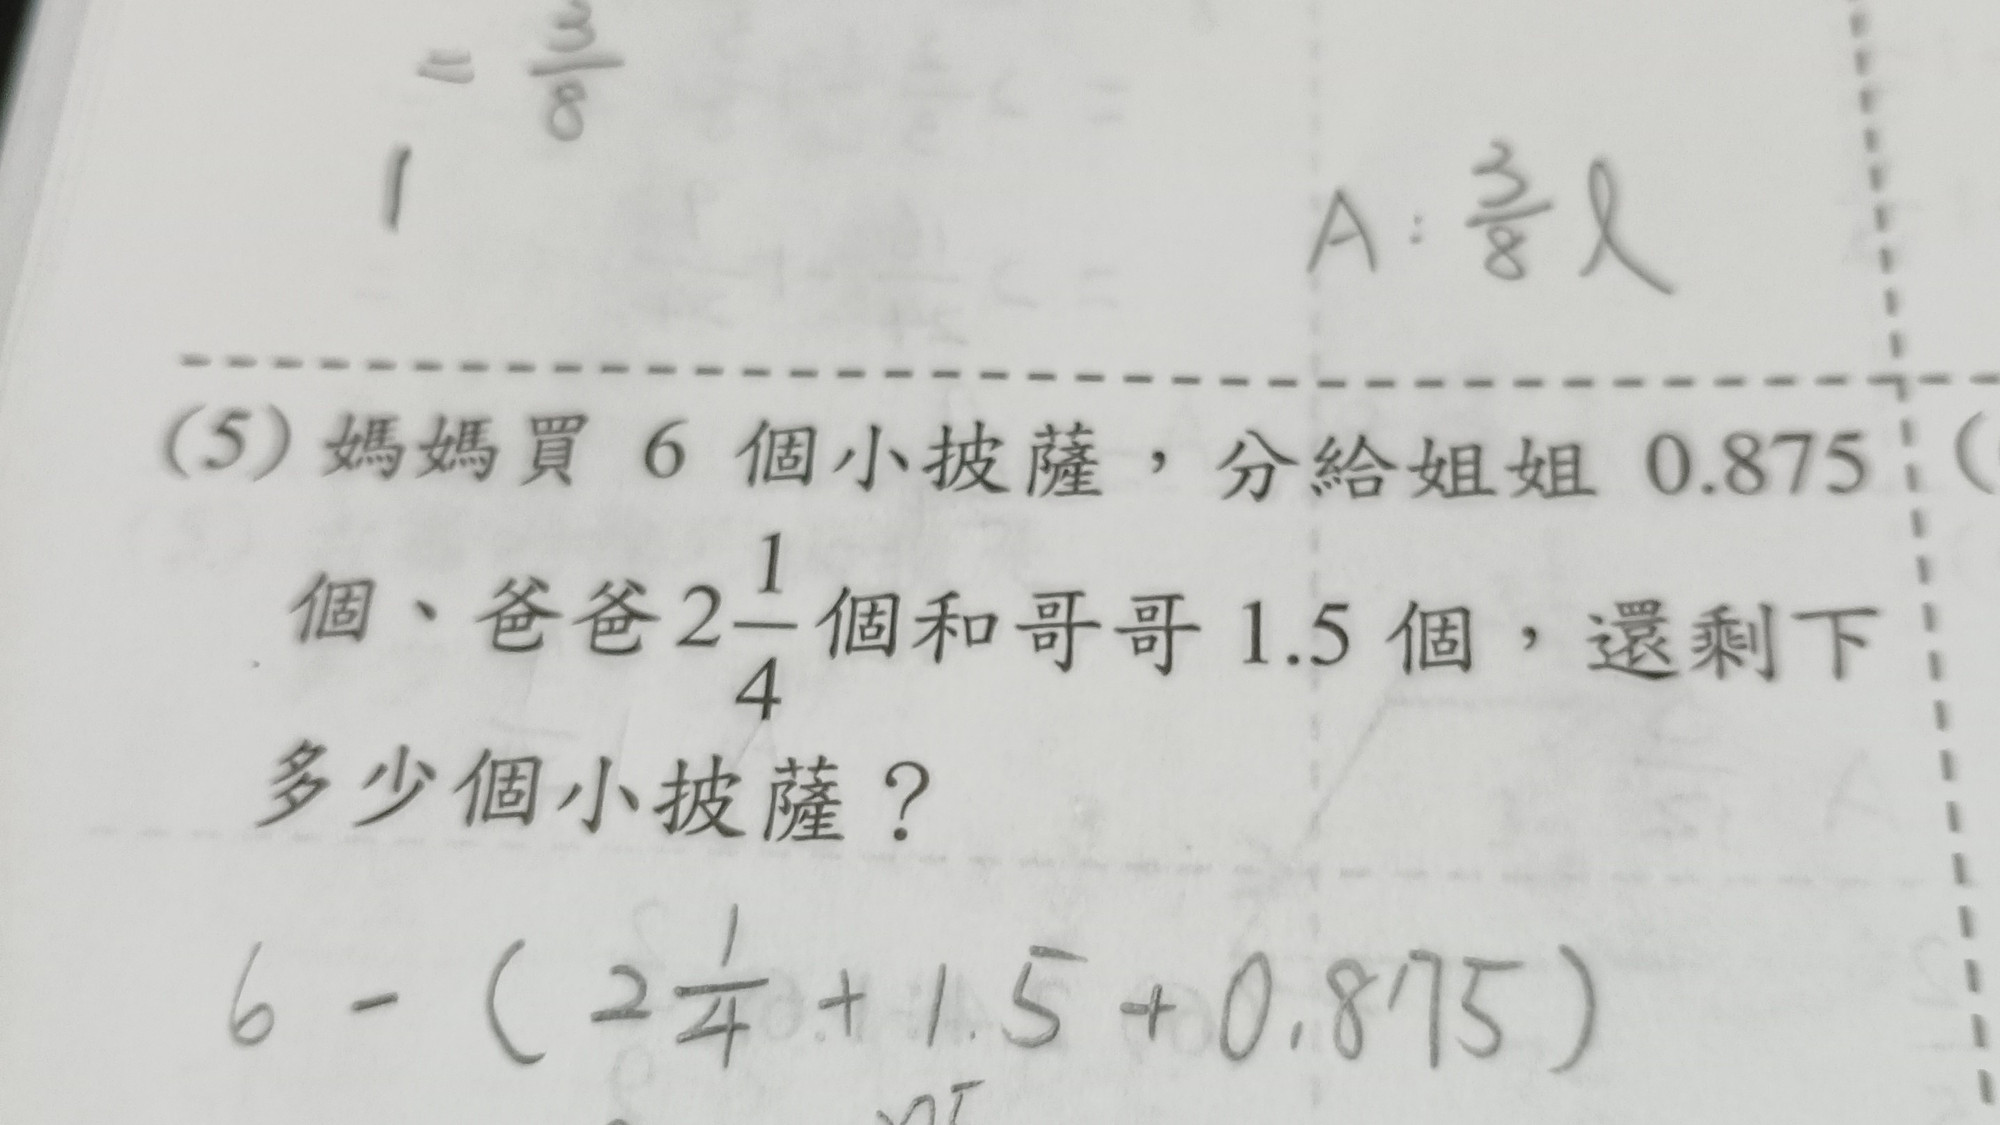 = 3/8
1
A: 3/8 ℓ
(5) 媽媽買 6 個小披薩，分給姐姐 0.875
個、爸爸2 1/4 個和哥哥 1.5 個，還剩下
多少個小披薩？
6 - ( 2 1/4 + 1.5 + 0.875 )